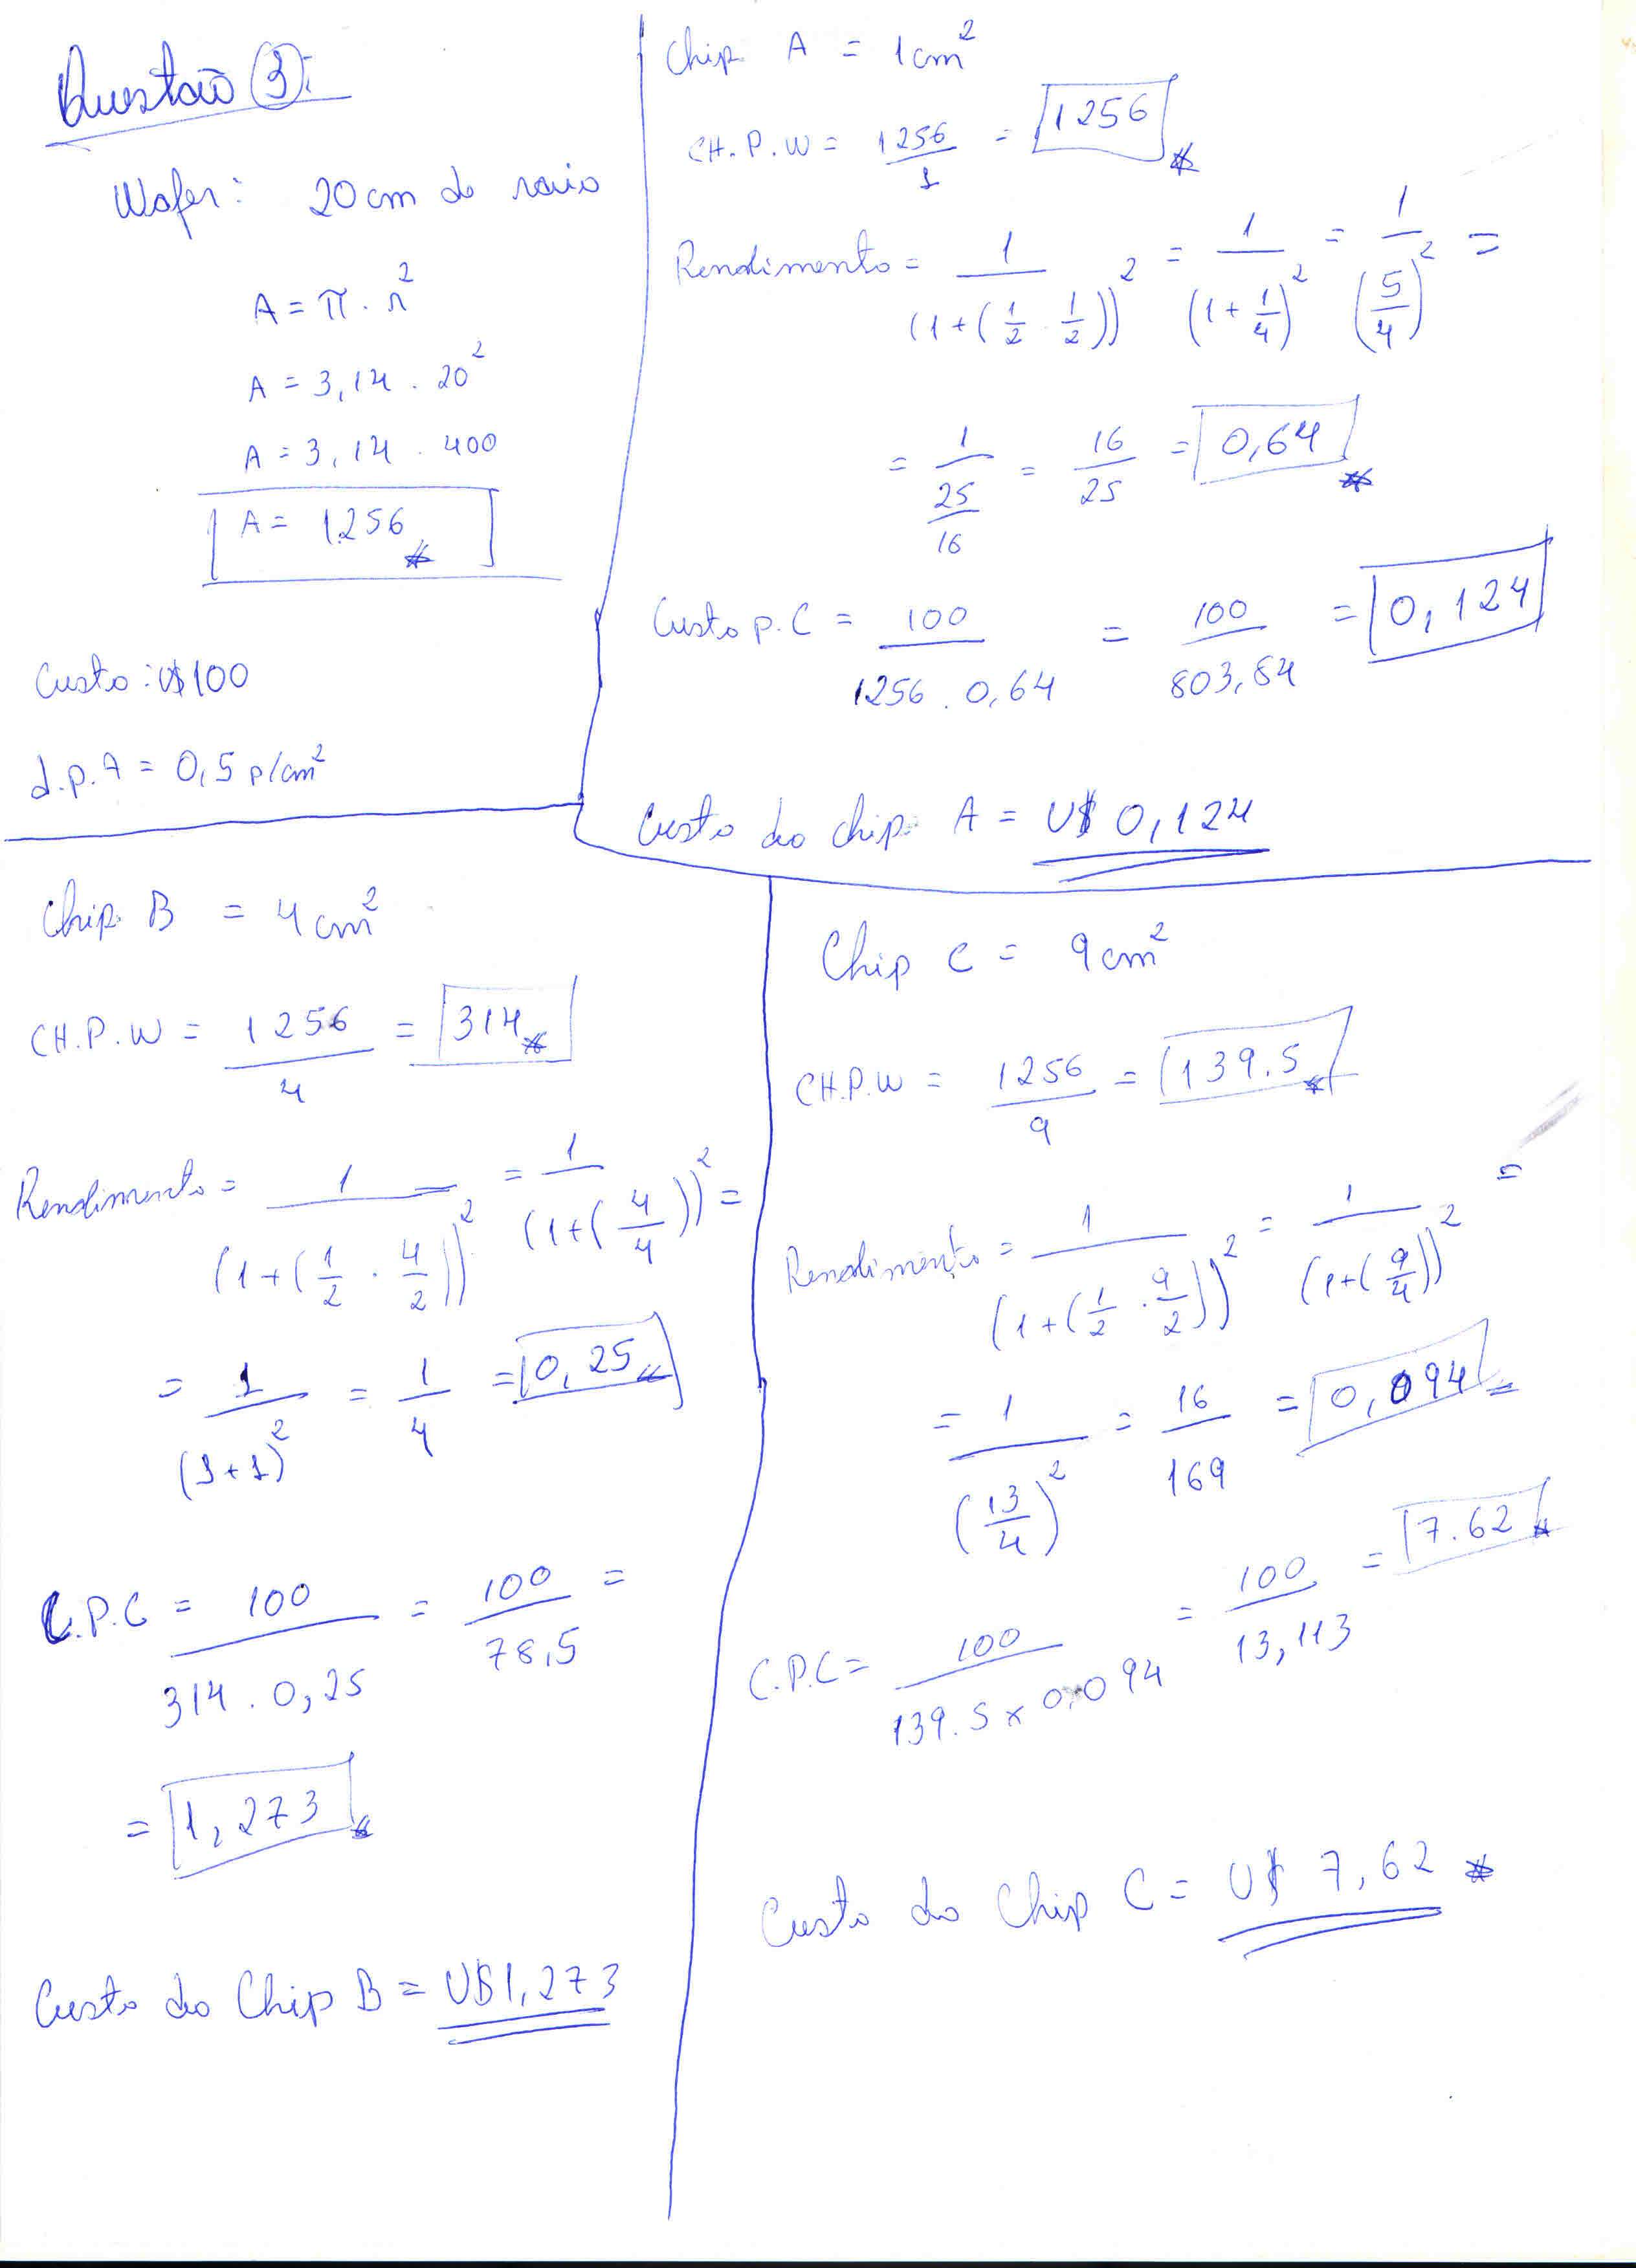 Questão 3:
Wafer: 20cm de raio
A = π . r²
A = 3,14 . 20²
A = 3,14 . 400
A = 1256
Custo: U$ 100
d.p.A = 0,5 p/cm²
Chip A = 1cm²
CH.P.W = 1256/1 = 1256
Rendimento = 1/(1+(1/2 . 1/2))² = 1/(1+1/4)² = 1/(5/4)² =
= 1/(25/16) = 16/25 = 0,64
Custo p.C = 100/(1256 . 0,64) = 100/803,84 = 0,124
Custo do chip A = U$ 0,124
Chip B = 4cm²
CH.P.W = 1256/4 = 314
Rendimento = 1/(1+(1/2 . 4/2))² = 1/(1+(4/4))² =
= 1/(1+1)² = 1/4 = 0,25
C.P.C = 100/(314 . 0,25) = 100/78,5 =
= 1,273
Custo do Chip B = U$ 1,273
Chip C = 9cm²
CH.P.W = 1256/9 = 139.5
Rendimento = 1/(1+(1/2 . 9/2))² = 1/(1+(9/4))² =
= 1/(13/4)² = 16/169 = 0,094
C.P.C = 100/(139.5 x 0,094) = 100/13,113 = 7.62
Custo do Chip C = U$ 7,62